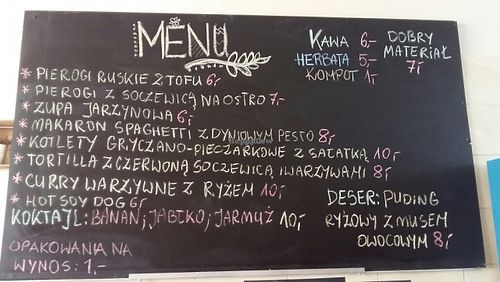 MENU
KAWA 6,-
HERBATA 5,-
KOMPOT 1,-
DOBRY
MATERIAŁ
7,-
* PIEROGI RUSKIE Z TOFU 6,-
* PIEROGI Z SOCZEWICĄ NA OSTRO 7,-
* ZUPA JARZYNOWA 6,-
* MAKARON SPAGHETTI Z DYNIOWYM PESTO 8,-
* KOTLETY GRYCZANO-PIECZARKOWE Z SAŁATKĄ 10,-
* TORTILLA Z CZERWONĄ SOCZEWICĄ I WARZYWAMI 8,-
* CURRY WARZYWNE Z RYŻEM 10,-
* HOT SOY DOG 6,-
KOKTAJL: BANAN; JABŁKO; JARMUŻ 10,-
OPAKOWANIA NA
WYNOS: 1.-
DESER: PUDING
RYŻOWY Z MUSEM
OWOCOWYM 8,-